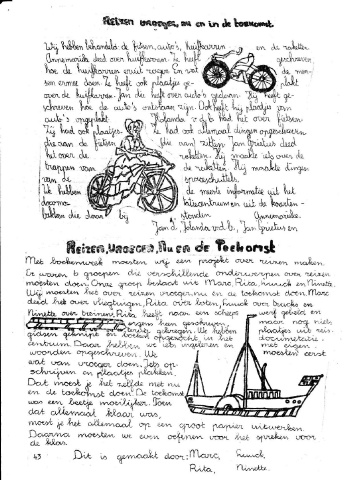 Reizen vroeger, nu en in de toekomst
Wij hebben behandeld de fietsen, auto's, huifkarren en de raketten.
Annemarieke deed over huifkarren. Ze heeft geschreven
hoe de huifkarren eruit
sen ermee doen. Ze heeft ook plaatjes ge- plakt
over de huifkarren. Jan die heeft over auto's gedaan. Hij heeft ge-
schreven hoe de auto's ontstaan zijn. Ook heeft hij plaatjes van
auto's opgeplakt. Jolanda v.d.b. Had het over fietsen
Zij had ook plaatjes. Ze had ook allemaal dingen opgeschreven
die aan de fietsen (die van) zitten. Jan Grietus deed
het over de raketten. Hij maakte als over de
trappen van de raketten. Hij maakte
van
We hebben de meeste informatie uit het
daarna
hebben die daar bij Annemarieke.
Jan d. Jolanda v.d.b., Jan Grietus en
Reizen, Vroeger, Nu en de Toekomst
Met boekenweek moesten wij een project over reizen maken.
Er waren 6 groepen die verschillende onderwerpen over reizen
moesten doen. Onze groep bestaat uit Marc, Rita, Huuck en Ninette.
Wij moesten het over reizen vroeger, nu en de toekomst doen. Marc
deed het over vliegtuigen, Rita over boten, Huuck over trucks en
Ninette over treinen. Rita heeft naar een scheeps werf gebeld en
ergens heen geschreven, maar nog niets
gekregen. We hebben plaatjes uit reis-
gidsen geknipt en boeken opgezocht in het documentatie-
centrum. Daar hebben we iets ingelezen en
woorden opgeschreven. We moesten eerst
wat van vroeger doen. Iets op-
schrijven en plaatjes plakken.
Dat moest je het zelfde met nu
en de toekomst doen. De toekomst
was een beetje moeilijker. Toen
dat allemaal klaar was,
moest je het allemaal op een groot papier uitwerken.
Daarna moesten we even oefenen voor het spreken voor
de klas.
43 Dit is gemaakt door: Marc, Huuck,
Rita, Ninette.